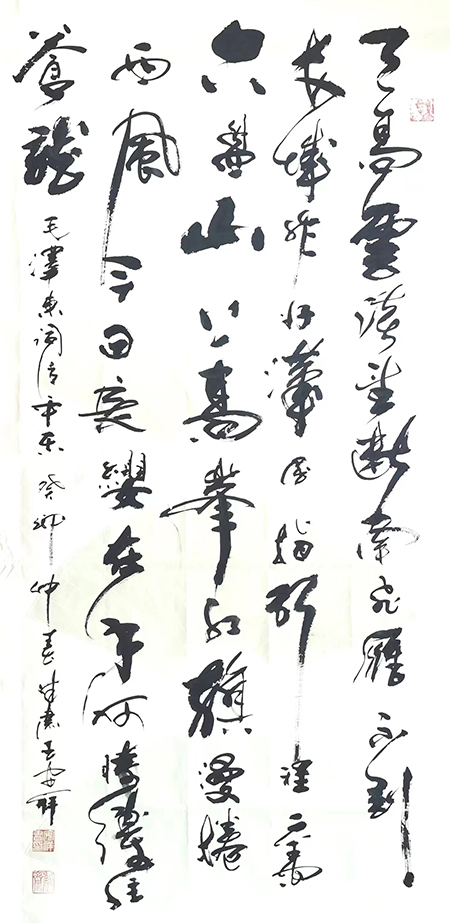 天高雲淡望斷南飛雁不到
長城非好漢屈指行程二萬
六盤山上高峯紅旗漫捲
西風今日長纓在手何時縛住
蒼龍 毛澤東詞清平樂 癸卯仲春